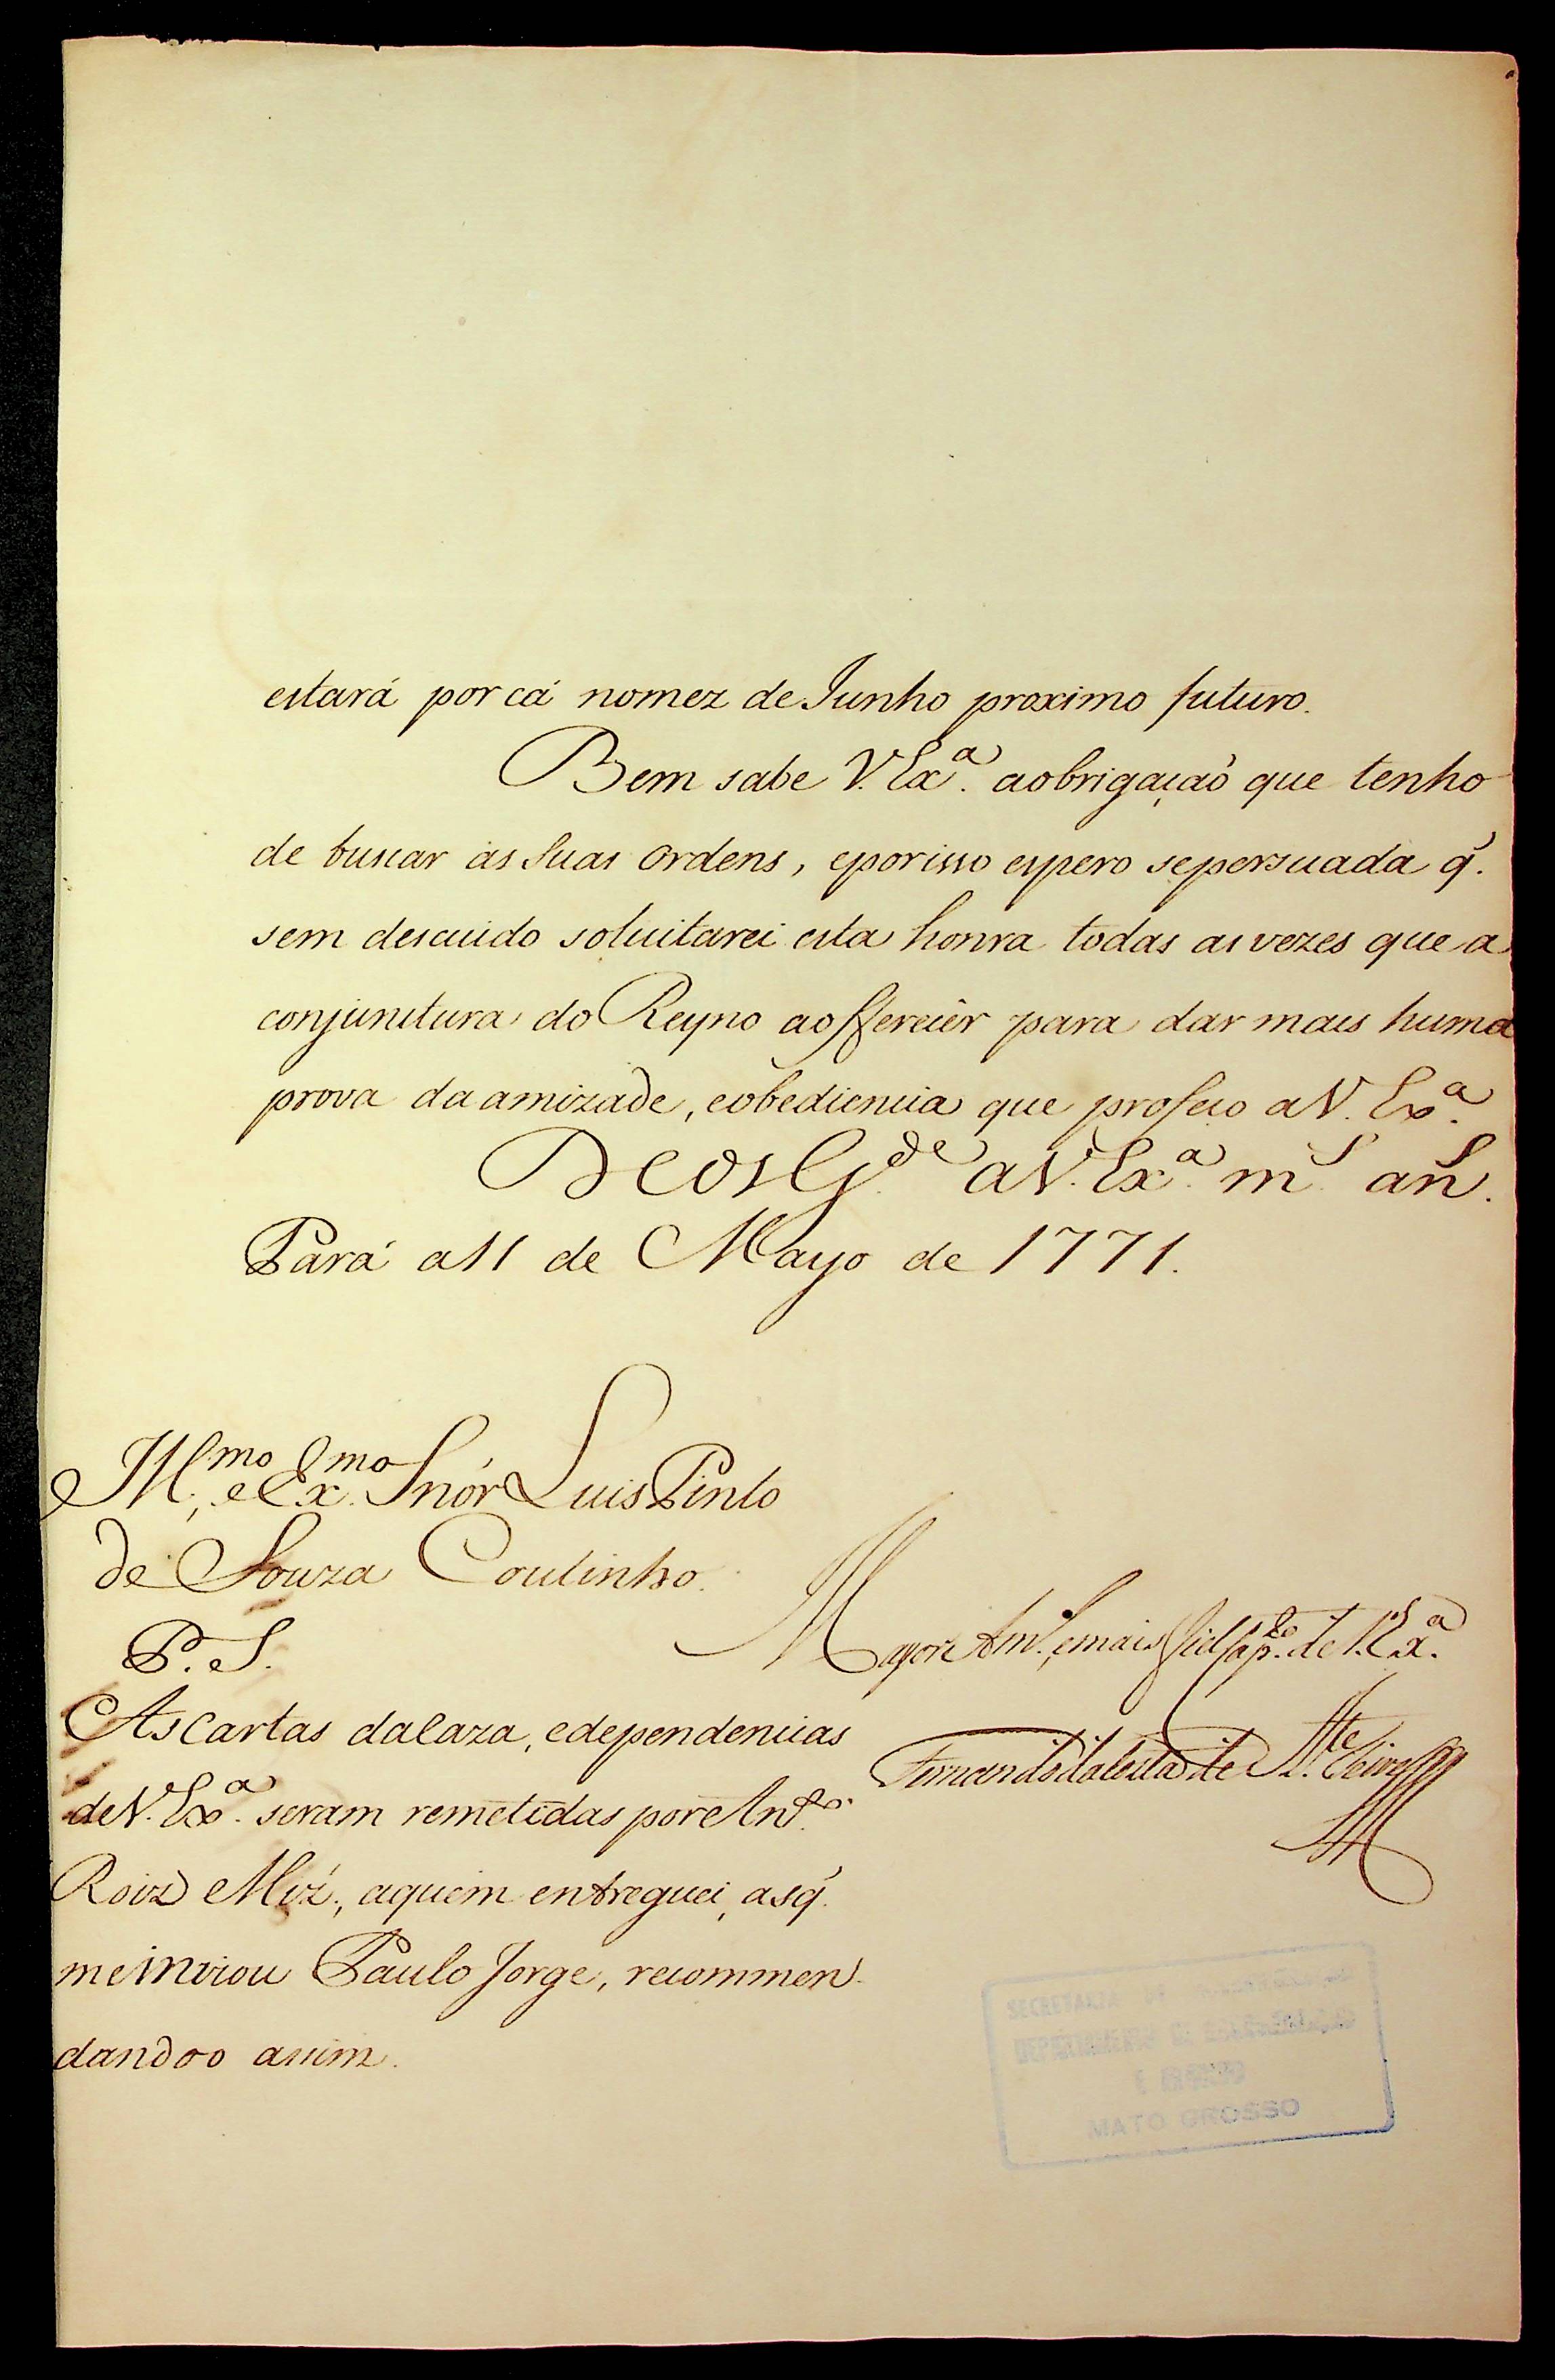 estará por cá nomez de Junho proximo futuro.
Bem sabe V. Exª. aobrigaçaõ que tenho
de buscar as suas ordens, eporisso espero sepersuada q̃.
sem descuido solicitarei esta honra todas asvezes que a
conjunctura do Reyno aofferecêr para dar mais huma
prova da amizade, eobediencia que profeço aV. Exª.
Deos G.de aV. Exª. m.s añ.s
Pará a11 de Mayo de 1771.
Ill.mo, e Ex.mo Snór Luis Pinto
de Souza Coutinho.
P. S.
Mayor Am.º, emais fiel Cap.to de V. Exª.
As Cartas daCaza, edependencias
deV. Exª. seram remetidas por Ant.º
Fernando daCosta de At.de Teive
Roiz Miź., aquem entreguei, asq̃.
meinviou Paulo Jorge, recommen-
dandoo assim.
SECRETARIA DE
DEPARTAMENTO DE
MATO GROSSO